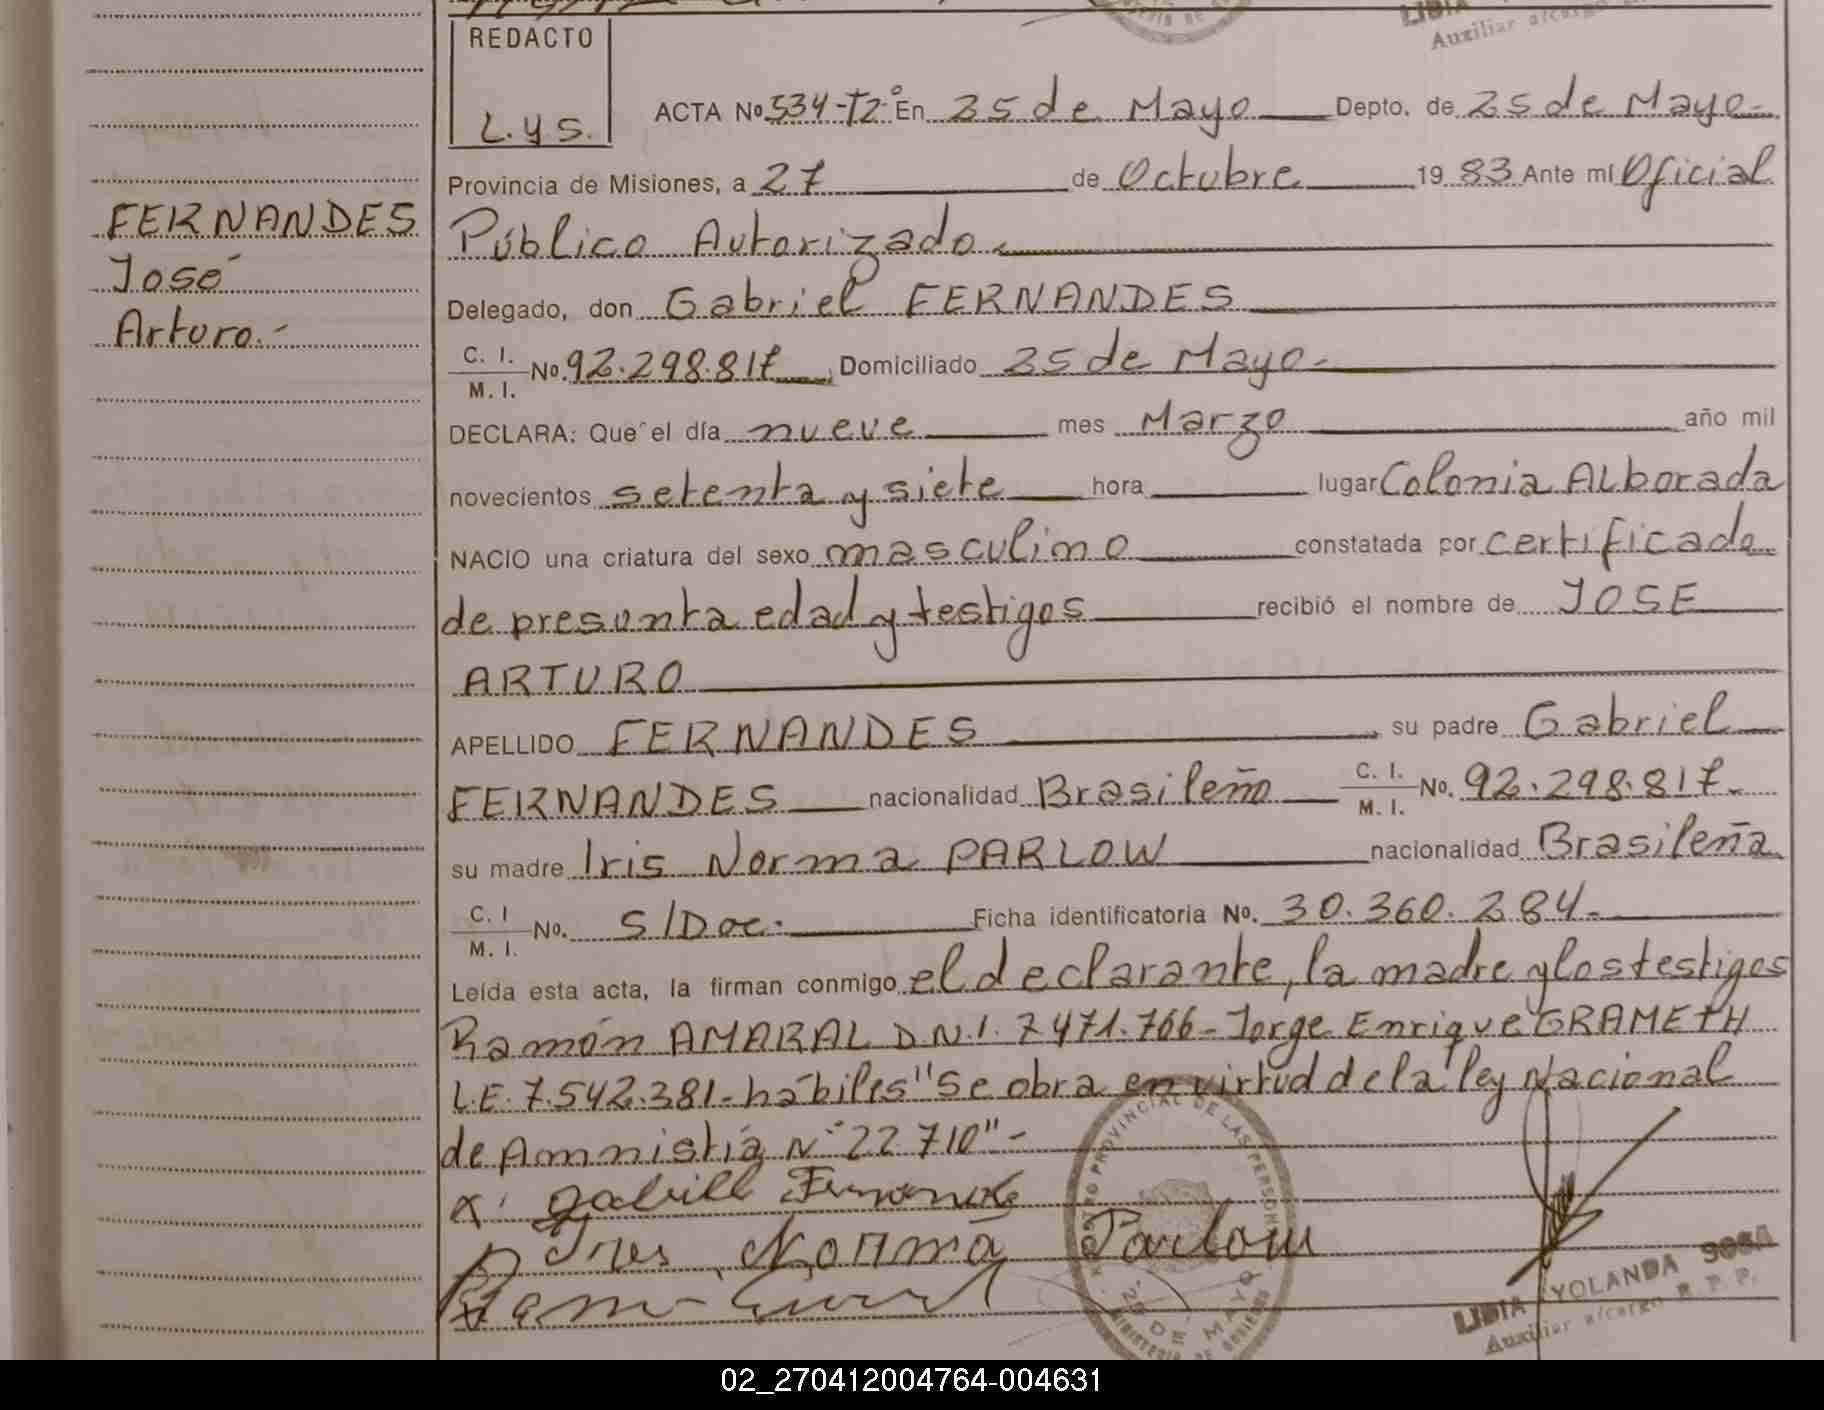 REDACTO
L.y S.
LIDIA
Auxiliar a/cargo
ACTA No 534-T2º En 25 de Mayo Depto. de 25 de Mayo-
Provincia de Misiones, a 27 de Octubre 19 83 Ante mí Oficial
Público Autorizado.
FERNANDES
José
Arturo.-
Delegado, don Gabriel FERNANDES
C. I.
M. I. No. 92.298.817 Domiciliado 25 de Mayo.-
DECLARA: Que el día nueve mes Marzo año mil
novecientos setenta y siete hora lugar Colonia ALborada
NACIO una criatura del sexo masculino constatada por certificado
de presunta edad y testigos recibió el nombre de JOSE
ARTURO
APELLIDO FERNANDES, su padre Gabriel
FERNANDES nacionalidad Brasileño C. I.
M. I. No. 92.298.817.-
su madre Iris Norma PARLOW nacionalidad Brasileña
C. I
M. I. No. S/Doc. Ficha identificatoria No. 30.360.284.-
Leída esta acta, la firman conmigo el declarante, la madre y los testigos
Ramón AMARAL D.N.I. 7471.766- Jorge Enrique GRAMETH
L.E. 7.542.381- hábiles "Se obra en virtud de la ley Nacional
de Amnistía Nº 22.710"-
Gabriel Fernandes
Iris Norma Parlow
REGISTRO PROVINCIAL DE LAS PERSONAS
25 DE MAYO
MINISTERIO DE GOBIERNO
LIDIA YOLANDA SOSA
Auxiliar a/cargo R. P. P.
02_270412004764-004631